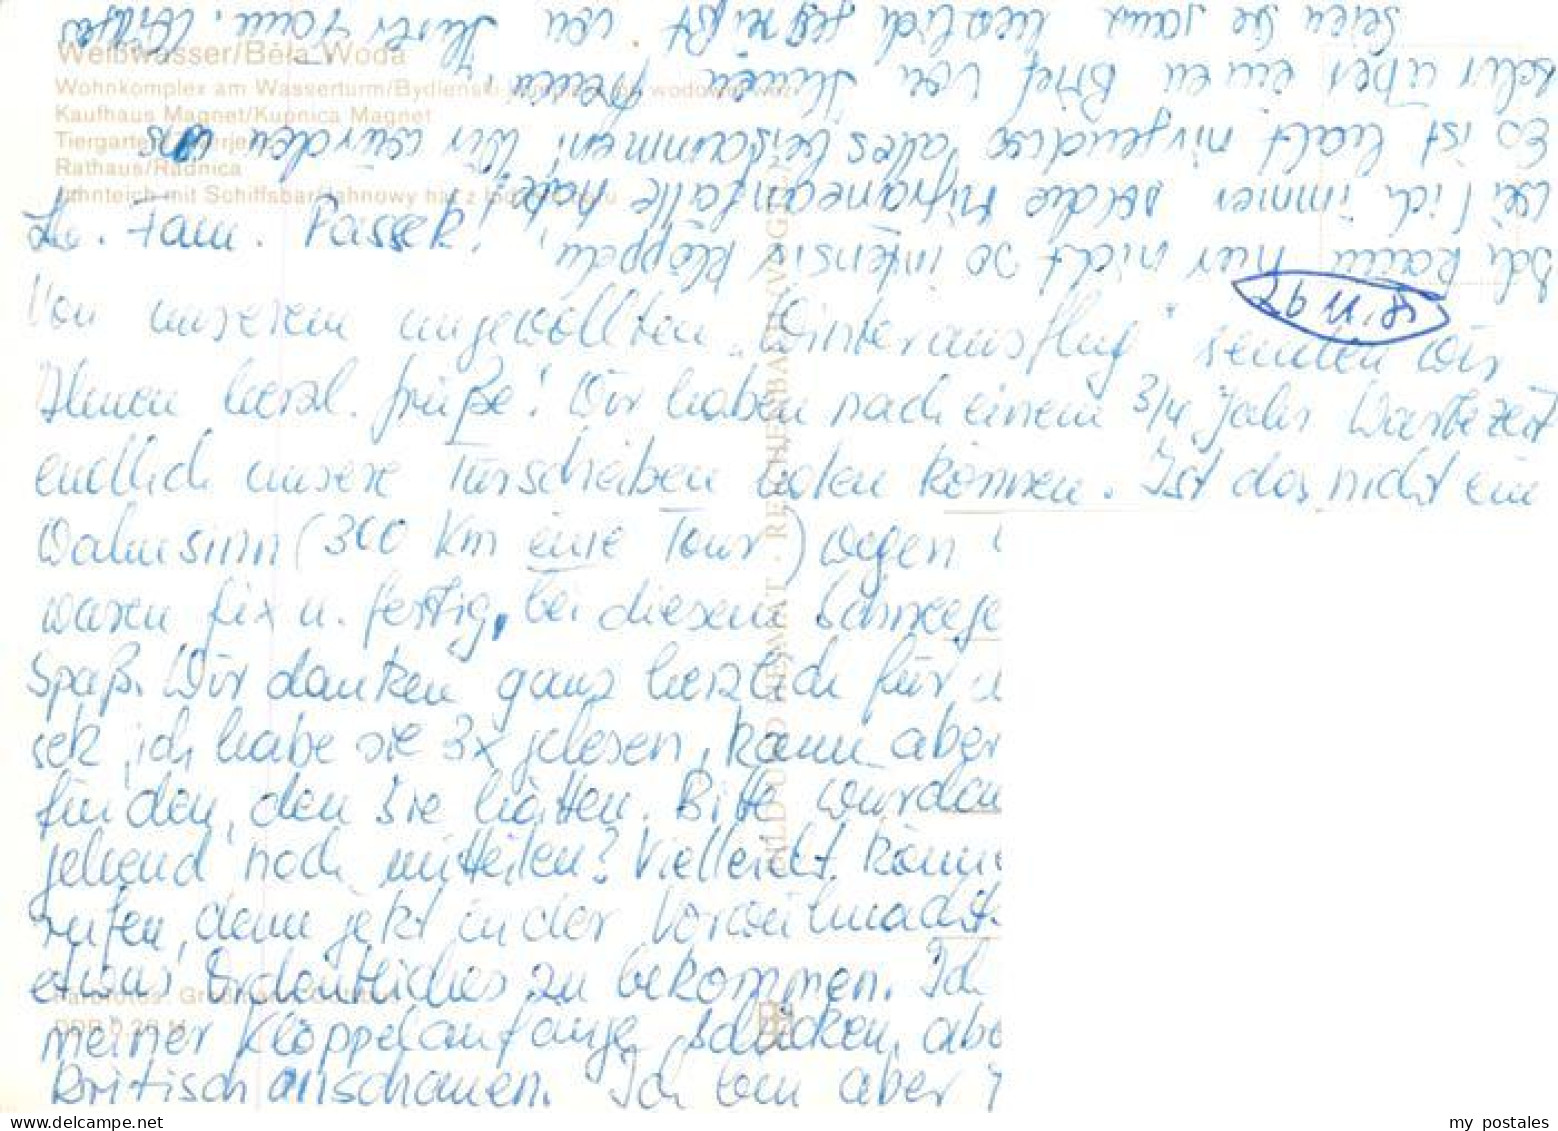 Weißwasser/Běła Woda
Wohnkomplex am Wasserturm/Bydlenski kompleks pri wodowej wěži
Kaufhaus Magnet/Kupnica Magnet
Tiergarten
Rathaus/Radnica
Jahnteich mit Schiffsbar/Jahnowy hat z
Lb. Fam. Passek!
Von unserem ungewollten "Winterausflug" senden wir
Ihnen herzl. Grüße! Wir haben nach einem 3/4 Jahr Wartezeit
endlich unsere Türscheiben holen können. Ist das nicht ein
Wahnsinn (300 km eine Tour) wegen
waren fix u. fertig, bei diesem Schneege
Spaß. Wir danken ganz herzlich für d
sek, ich habe sie 3x gelesen, kann aber
finden, den Sie hätten. Bitte würden
gehend noch mitteilen? Vielleicht könne
rufen, denn jetzt in der Vorweihnachts
etwas Ordentliches zu bekommen. Ich
meiner Klöppelanfänge schicken, abe
kritisch anschauen. Ich bin aber
Ich kann nur nicht so intensiv klöppeln,
weil ich immer solche Migräneanfälle habe!
Es ist halt nirgendwo alles beisammen! Wir würden uns
sehr über einen Brief von Ihnen freuen.
Seien Sie samt herzlich gegrüßt von Ihrer Fam.
BILD UND HEIMAT · REICHENBACH (VOGTL)
Farbfotos:
my postales